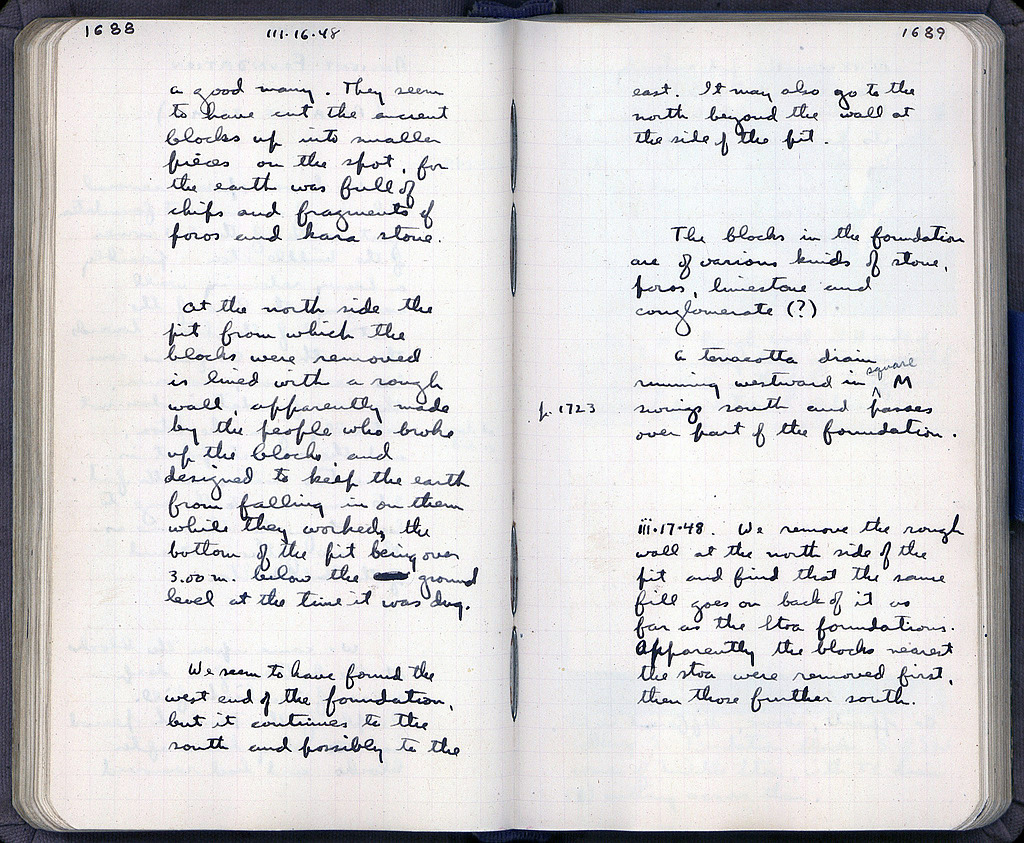 1688
III·16·48
a good many. They seem
to have cut the ancient
blocks up into smaller
pieces on the spot, for
the earth was full of
chips and fragments of
poros and kara stone.
At the north side the
pit from which the
blocks were removed
is lined with a rough
wall, apparently made
by the people who broke
up the blocks and
designed to keep the earth
from falling in on them
while they worked, the
bottom of the pit being over
3.00 m. below the ground
level at the time it was dug.
We seem to have found the
west end of the foundation,
but it continues to the
south and possibly to the
1689
east. It may also go to the
north beyond the wall at
the side of the pit.
The blocks in the foundation
are of various kinds of stone,
poros, limestone and
conglomerate (?)
A terracotta drain
running westward in square M
p. 1723
swings south and passes
over part of the foundation.
III·17·48. We remove the rough
wall at the north side of the
pit and find that the same
fill goes on back of it as
far as the Stoa foundations.
Apparently the blocks nearest
the stoa were removed first,
then those further south.